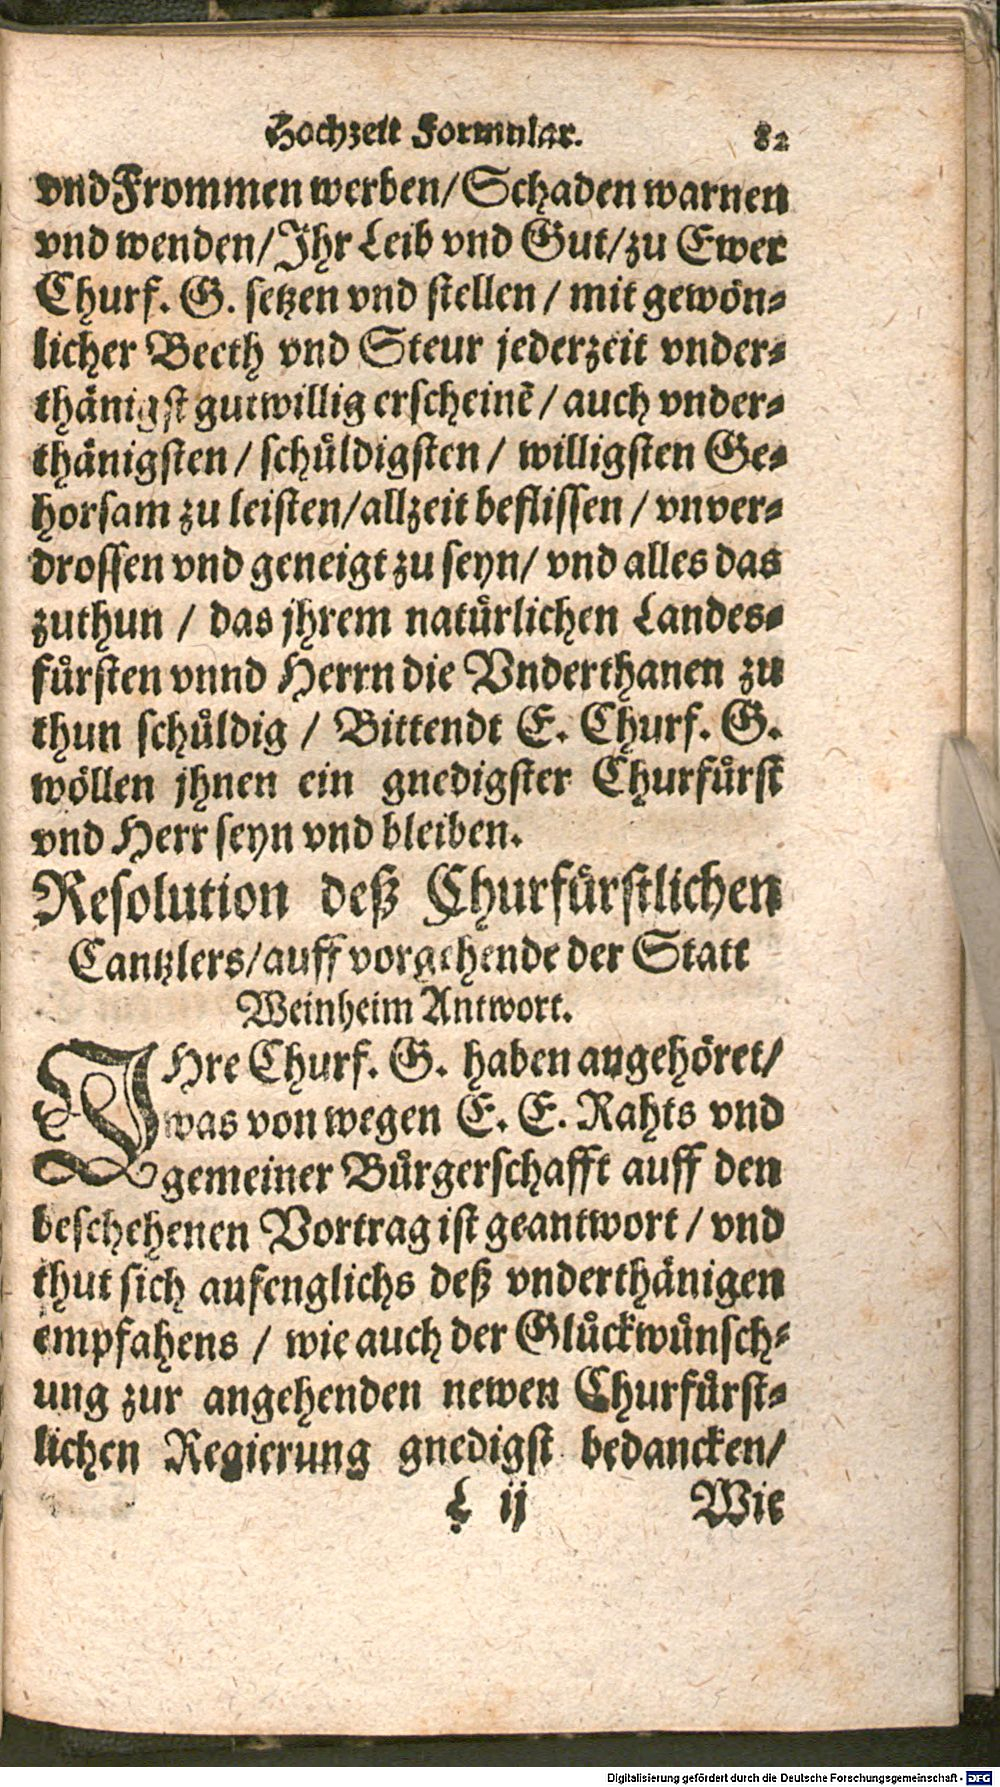 Hochzeit Formular. 82
vnd Frommen werben/ Schaden warnen
vnd wenden/ Jhr Leib vnd Gut/ zu Ewer
Churf. G. setzen vnd stellen / mit gewön⸗
licher Beeth vnd Steur jederzeit vnder⸗
thänigst gutwillig erscheinẽ / auch vnder⸗
thänigsten / schůldigsten / willigsten Ge⸗
horsam zu leisten/ allzeit beflissen / vnver⸗
drossen vnd geneigt zu seyn/ vnd alles das
zuthun / das jhrem natůrlichen Landes⸗
fůrsten vnnd Herrn die Vnderthanen zu
thun schůldig / Bittendt E. Churf. G.
wöllen jhnen ein gnedigster Churfůrst
vnd Herr seyn vnd bleiben.
Resolution deß Churfůrstlichen
Cantzlers/ auff vorgehende der Statt
Weinheim Antwort.
JHre Churf. G. haben angehöret/
was von wegen E. E. Rahts vnd
gemeiner Bůrgerschafft auff den
beschehenen Vortrag ist geantwort / vnd
thut sich anfenglichs deß vnderthänigen
empfahens / wie auch der Glůckwůnsch⸗
ung zur angehenden newen Churfůrst⸗
lichen Regierung gnedigst bedancken/
L ij Wie
Digitalisierung gefördert durch die Deutsche Forschungsgemeinschaft - DFG